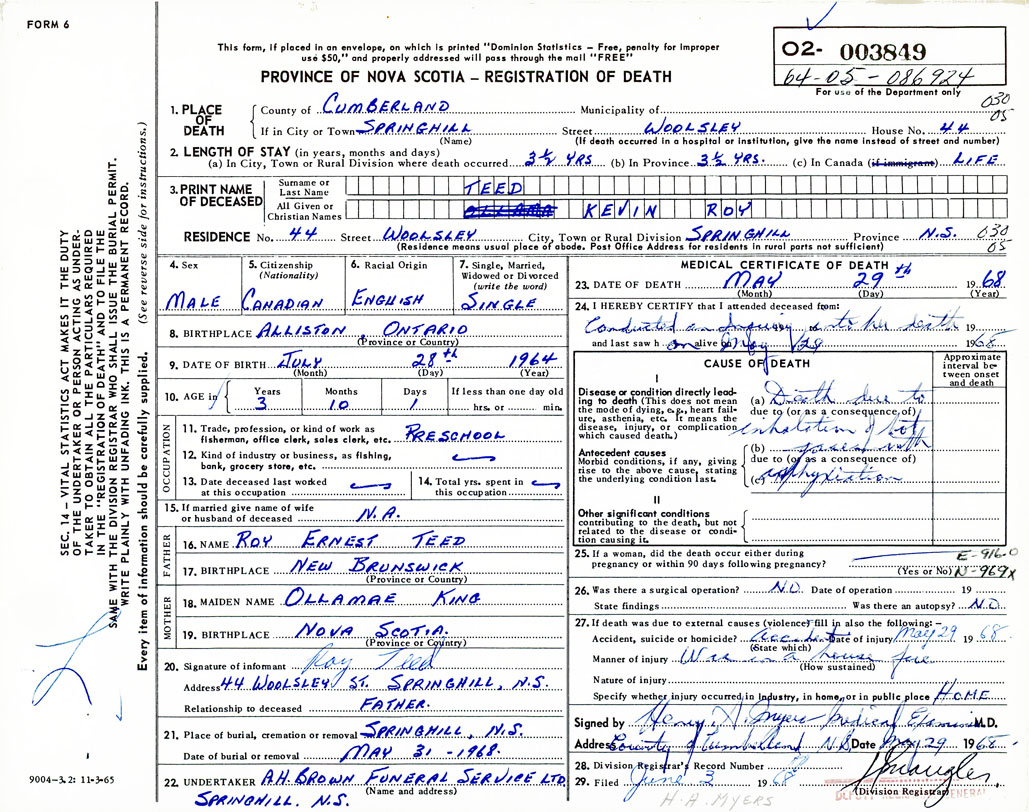 FORM 6
This form, if placed in an envelope, on which is printed "Dominion Statistics – Free, penalty for improper
use $50," and properly addressed will pass through the mail "FREE"
PROVINCE OF NOVA SCOTIA – REGISTRATION OF DEATH
02- 003849
64-05-086924
For use of the Department only
030
05
1. PLACE OF DEATH
County of CUMBERLAND Municipality of
If in City or Town SPRINGHILL Street WOOLSLEY House No. 44
(Name) (If death occurred in a hospital or institution, give the name instead of street and number)
2. LENGTH OF STAY (in years, months and days)
(a) In City, Town or Rural Division where death occurred 3½ YRS (b) In Province 3½ YRS. (c) In Canada (if immigrant) LIFE
3. PRINT NAME OF DECEASED
Surname or Last Name TEED
All Given or Christian Names OLLAMA KEVIN ROY
RESIDENCE No. 44 Street WOOLSLEY City, Town or Rural Division SPRINGHILL Province N.S. 030
05
(Residence means usual place of abode. Post Office Address for residents in rural parts not sufficient)
4. Sex
MALE
5. Citizenship (Nationality)
CANADIAN
6. Racial Origin
ENGLISH
7. Single, Married, Widowed or Divorced (write the word)
SINGLE
8. BIRTHPLACE ALLISTON, ONTARIO
(Province or Country)
9. DATE OF BIRTH JULY 28th 1964
(Month) (Day) (Year)
10. AGE in Years 3 Months 10 Days 1 If less than one day old
hrs. or min.
OCCUPATION
11. Trade, profession or kind of work as
fisherman, office clerk, sales clerk, etc. PRESCHOOL
12. Kind of industry or business, as fishing,
bank, grocery store, etc.
13. Date deceased last worked
at this occupation
14. Total yrs. spent in
this occupation
15. If married give name of wife
or husband of deceased N.A.
FATHER
16. NAME ROY ERNEST TEED
17. BIRTHPLACE NEW BRUNSWICK
(Province or Country)
MOTHER
18. MAIDEN NAME OLLAMAE KING
19. BIRTHPLACE NOVA SCOTIA.
(Province or Country)
20. Signature of informant Roy Teed
Address 44 WOOLSLEY ST. SPRINGHILL, N.S.
Relationship to deceased FATHER.
21. Place of burial, cremation or removal SPRINGHILL, N.S.
Date of burial or removal MAY 31 - 1968.
22. UNDERTAKER A.H. BROWN FUNERAL SERVICE LTD
(Name and address)
SPRINGHILL. N.S.
MEDICAL CERTIFICATE OF DEATH
23. DATE OF DEATH MAY 29th 1968
(Month) (Day) (Year)
24. I HEREBY CERTIFY that I attended deceased from:
Conducted an Inquiry into her death 19
and last saw h alive on May 29 1968
CAUSE OF DEATH
Approximate interval between onset and death
I
Disease or condition directly leading to death (This does not mean the mode of dying, e.g., heart failure, asthenia, etc. It means the disease, injury, or complication which caused death.)
(a) Death due to
due to (or as a consequence of)
inhalation of hot
Antecedent causes
Morbid conditions, if any, giving rise to the above cause, stating the underlying condition last.
(b) gases with
due to (or as a consequence of)
(c) asphyxiation
II
Other significant conditions
contributing to the death, but not related to the disease or condition causing it.
25. If a woman, did the death occur either during
pregnancy or within 90 days following pregnancy?
(Yes or No)
E-916-0
N-969X
26. Was there a surgical operation? NO. Date of operation 19
State findings Was there an autopsy? NO.
27. If death was due to external causes (violence) fill in also the following:-
Accident, suicide or homicide? Accident Date of injury May 29 1968
(State which)
Manner of injury Was in a house fire
(How sustained)
Nature of injury
Specify whether injury occurred in Industry, in home, or in public place HOME
Signed by Henry A. Myers Medical Examiner M.D.
Address County of Cumberland N.S. Date May 29 1968.
28. Division Registrar's Record Number
29. Filed June 3 1968
(Division Registrar)
H.A. MYERS
SEC. 14 – VITAL STATISTICS ACT MAKES IT THE DUTY
OF THE UNDERTAKER OR PERSON ACTING AS UNDER-
TAKER TO OBTAIN ALL THE PARTICULARS REQUIRED
IN THE "REGISTRATION OF DEATH" AND TO FILE THE
SAME WITH THE DIVISION REGISTRAR WHO SHALL ISSUE THE BURIAL PERMIT.
WRITE PLAINLY WITH UNFADING INK. THIS IS A PERMANENT RECORD.
Every item of information should be carefully supplied. (See reverse side for instructions.)
9004-3.2: 11-3-65